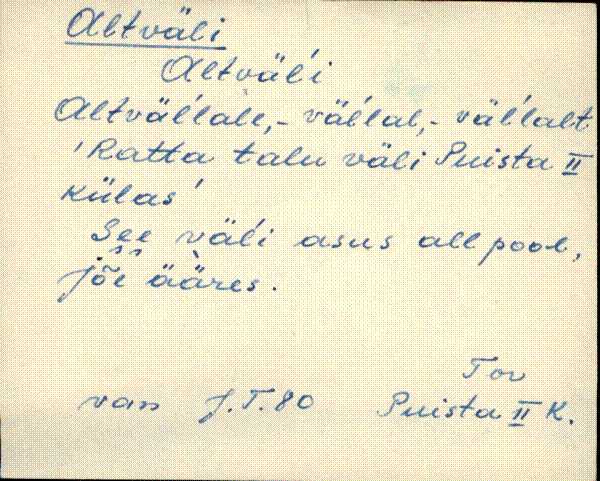 Altväli
Altväl'i
Altväl'lale, - väl'lal, - väl'lalt
'Ratta talu väli Puista II
külas'
See väl'i asus allpool,
jõe ääres.
Tor
van J.T.80 Puista II K.